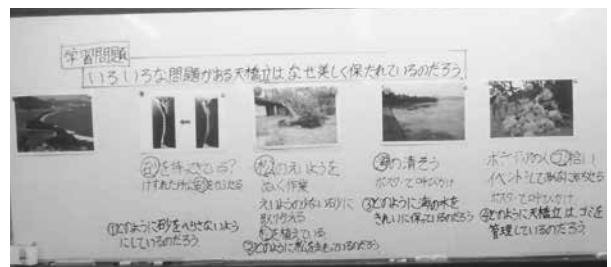 学習問題
いろいろな問題がある天橋立は、なぜ美しく保たれているのだろう。
砂を持ってきている?
けずれた所に砂を入れる
①どのように砂をへらさないよう
にしているのだろう
松のえいようを
ぬく作業
えいようの少ない砂に
取りかえる
松を植えている
②どのように松を守っているのだろう
海の清そう
ポスターで呼びかけ
③どのように海の水を
きれいに保っているのだろう
ボランティアの人 ゴミ拾い
ポスターで呼びかけ
④どのように天橋立は、ゴミを
管理しているのだろう